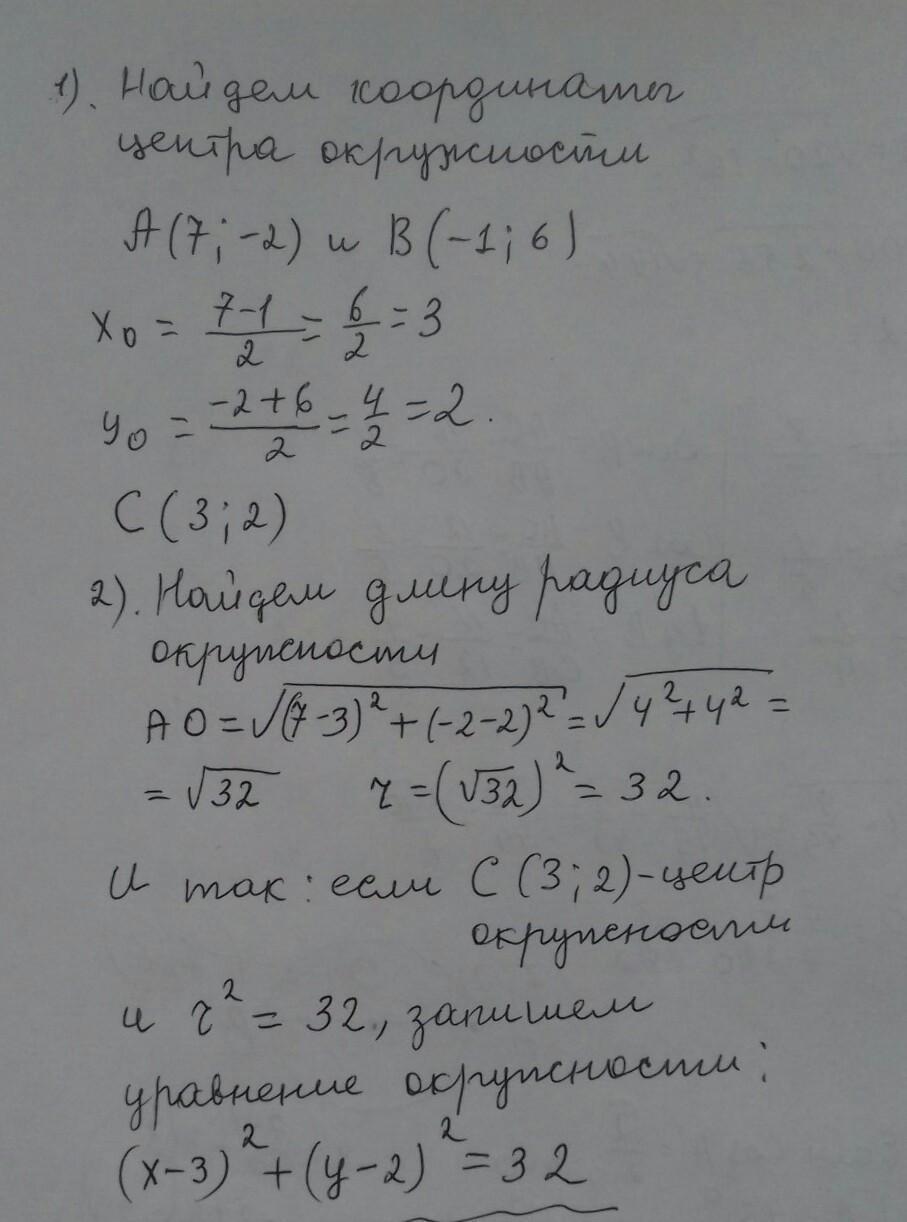 1). Найдем координаты
центра окружности
A(7;-2) и B(-1;6)
x₀ = (7-1)/2 = 6/2 = 3
y₀ = (-2+6)/2 = 4/2 = 2.
C(3;2)
2). Найдем длину радиуса
окружности
AO = √((7-3)² + (-2-2)²) = √(4²+4²) =
= √32 r = (√32)² = 32.
И так: если C(3;2)-центр
окружности
и r² = 32, запишем
уравнение окружности:
(x-3)² + (y-2)² = 32